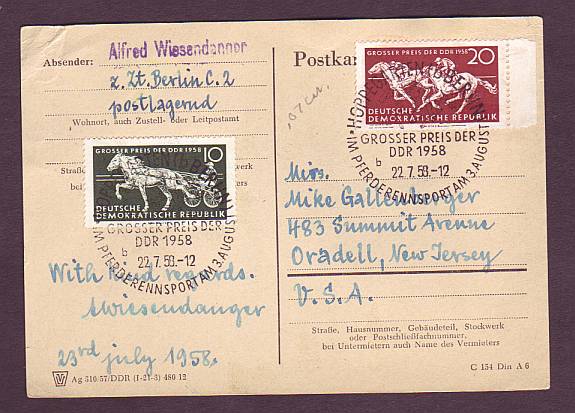 Alfred Wiesendanner
Absender:
z. Zt. Berlin C. 2
postlagernd
Wohnort, auch Zustell- oder Leitpostamt
Postkar
GROSSER PREIS DER DDR 1958 10
DEUTSCHE
DEMOKRATISCHE REPUBLIK
GROSSER PREIS DER
DDR 1958
b 22.7.58-12
IM PFERDERENNSPORT AM 3. AUGUST
With kind regards.
AWiesendanger
23rd july 1958.
Ag 310/57/DDR (I-21-3) 480 12
GROSSER PREIS DER DDR 1958 20
DEUTSCHE
DEMOKRATISCHE REPUBLIK
HOPPEGARTEN b. BERLIN
GROSSER PREIS DER
DDR 1958
b 22.7.58-12
IM PFERDERENNSPORT AM 3. AUGUST
Mrs.
Mike Gallenberger
483 Summit Avenue
Oradell, New Jersey
U.S.A.
Straße, Hausnummer, Gebäudeteil, Stockwerk
oder Postschließfachnummer,
bei Untermietern auch Name des Vermieters
C 154 Din A 6